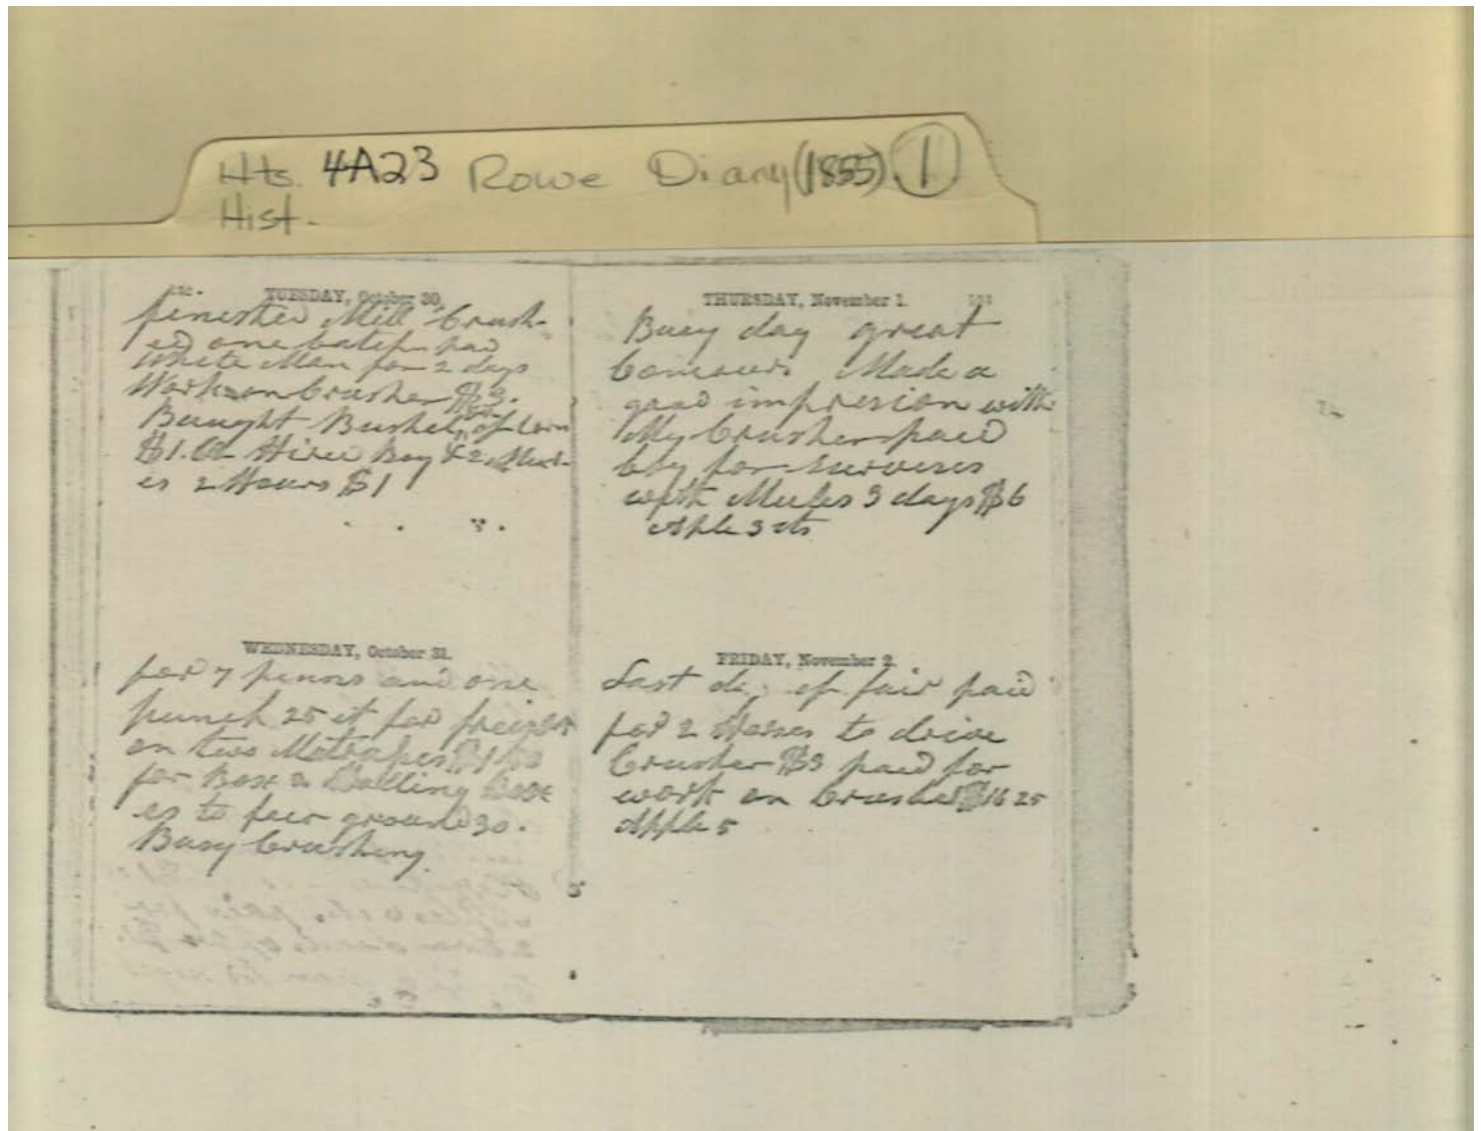 Hts. 4A23 Rowe Diary (1855) 1
Hist.
TUESDAY, October 30.
finested Mill Crush-
ed one batch pad
White Man for 2 days
Work on Crusher $3.
Baught Bushel of Corn
$1. Hired Boy & 2 Mul-
es 2 Hours $1
WEDNESDAY, October 31.
pad 7 and one
punch 25 ct pad freight
on two $1
for Box & Balling Box
es to fair ground 30.
Busy Crushing
THURSDAY, November 1.
Buey day great
Made a
good impresion with
My Crusher paid
for
with Mules 3 days $6
Aple 3 cts
FRIDAY, November 2.
Last da of fair paid
for 2 Horses to drive
Crusher $3 paid for
work on Crusher $16 25
Apple 5